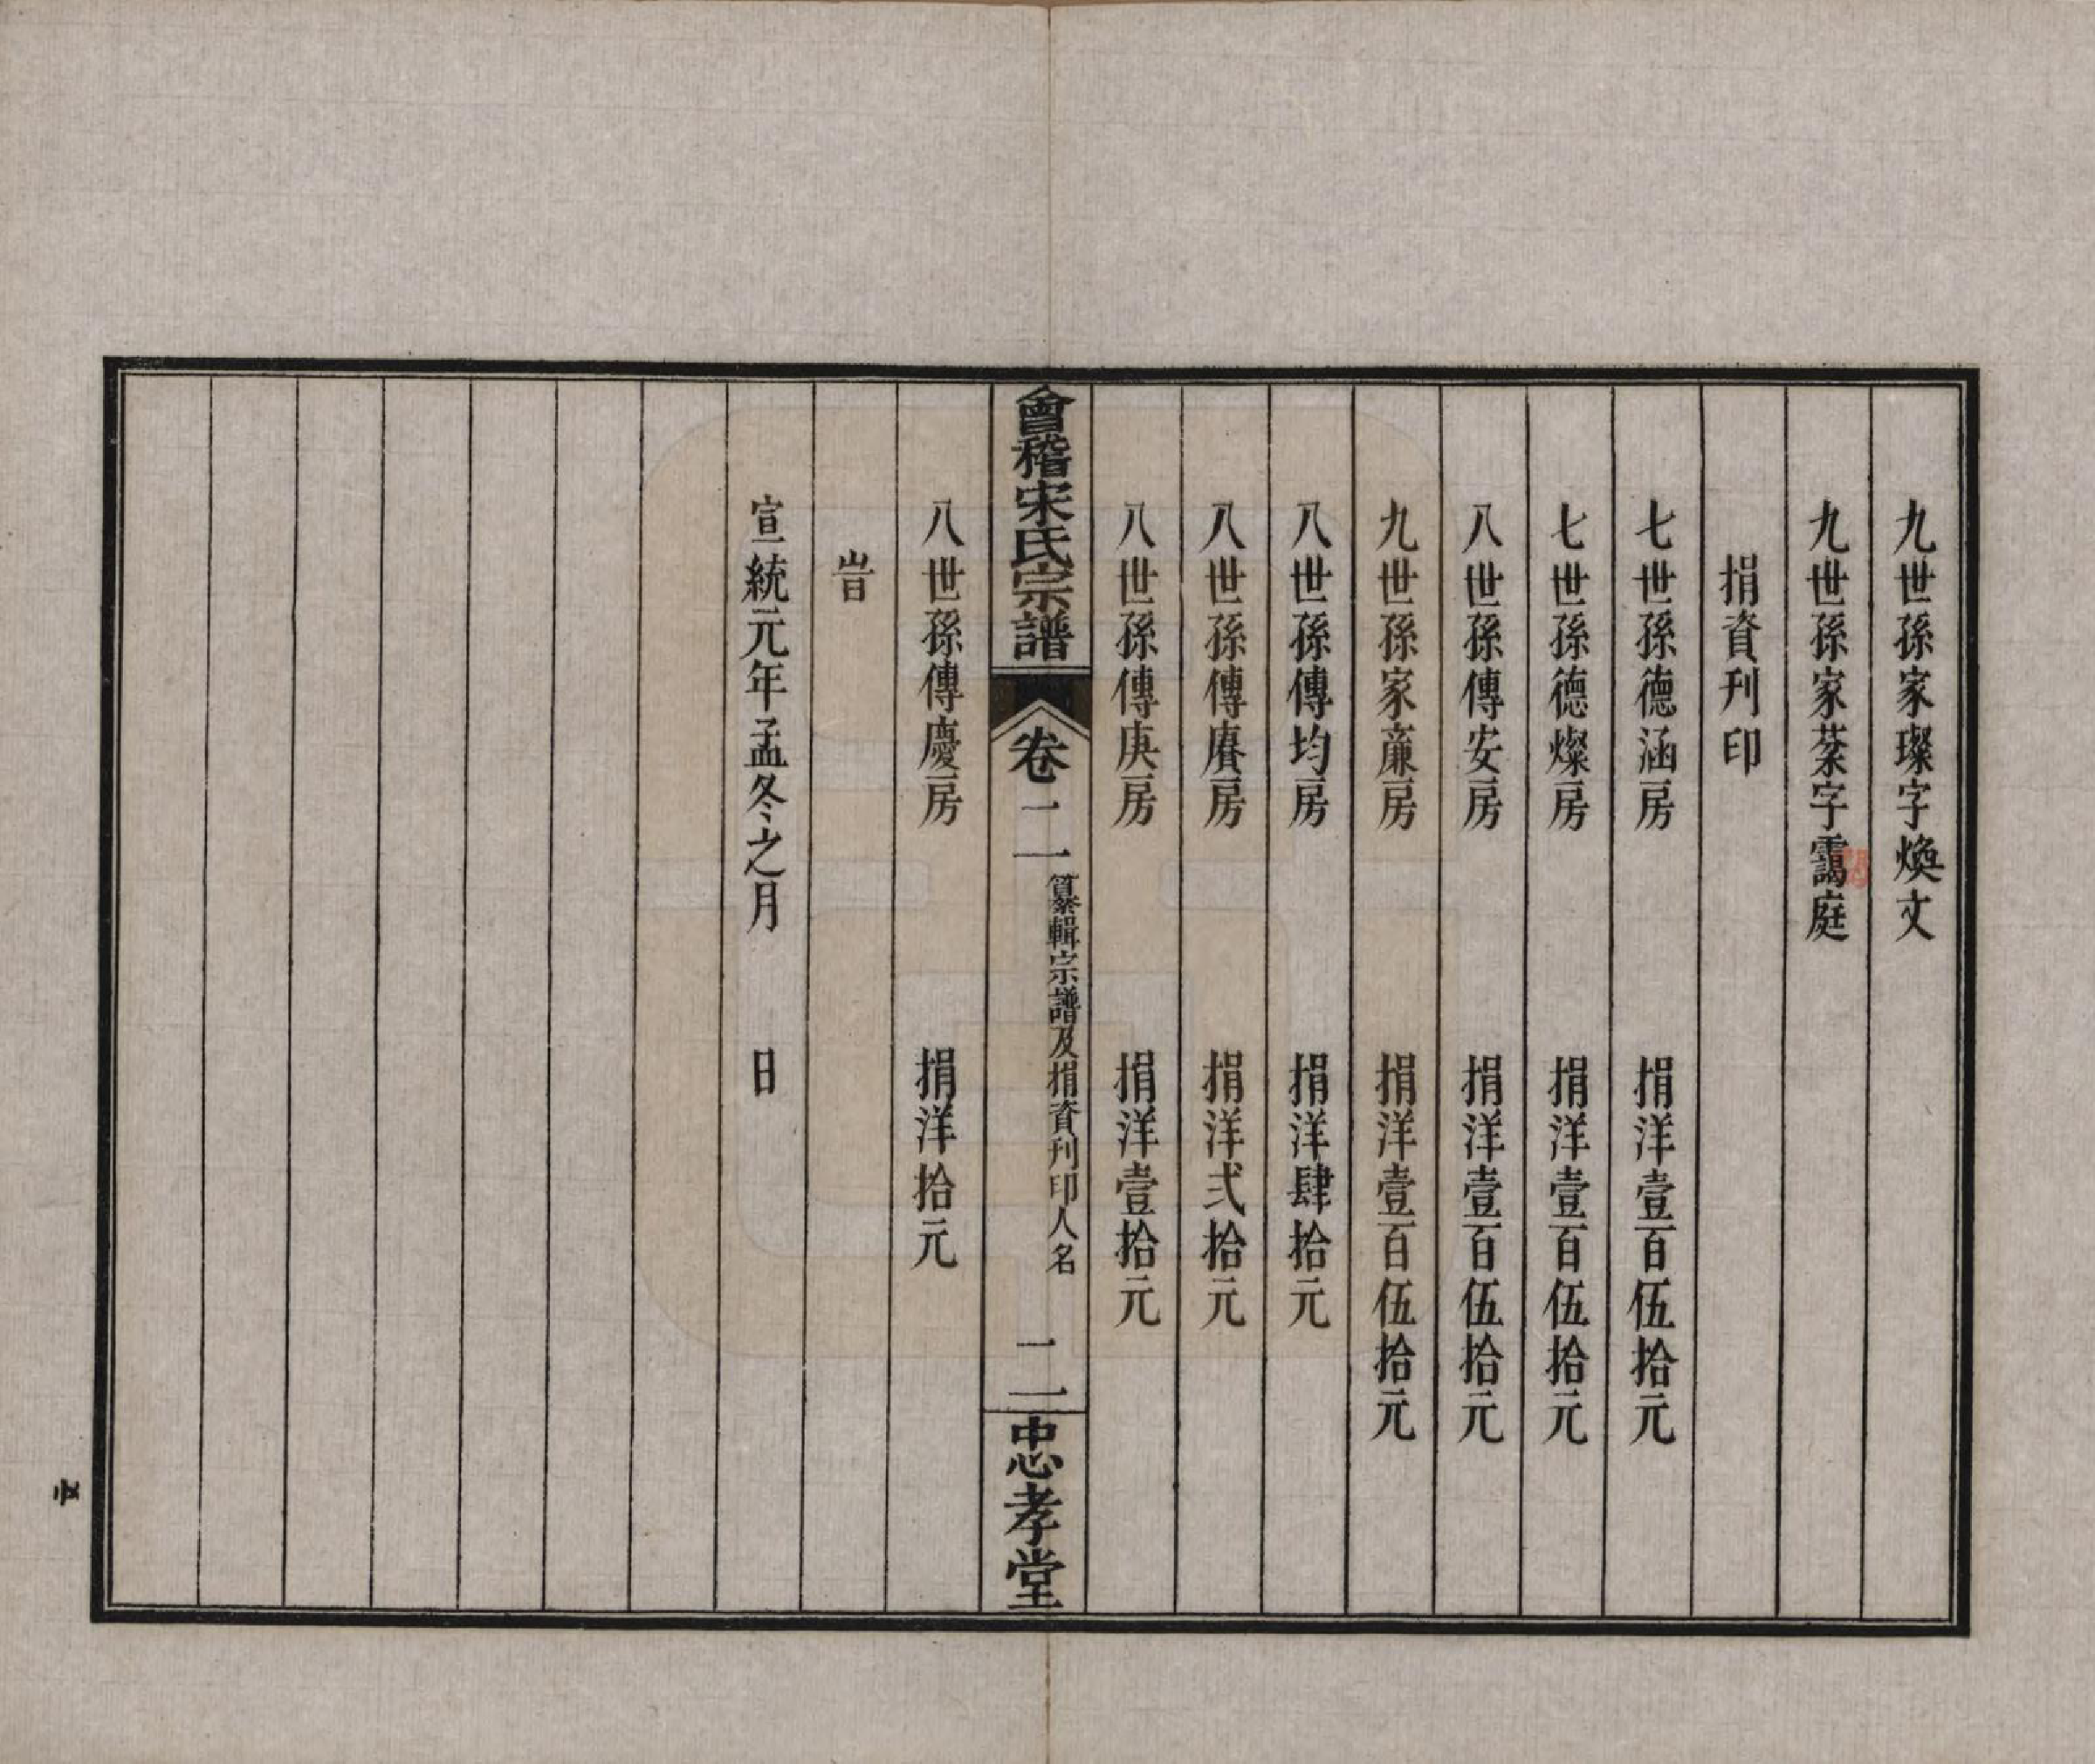 九世孫家璨字煥文
九世孫家棻字靄庭
捐資刊印
七世孫德涵房　捐洋壹百伍拾元
七世孫德燦房　捐洋壹百伍拾元
八世孫傳安房　捐洋壹百伍拾元
九世孫家廉房　捐洋壹百伍拾元
八世孫傳均房　捐洋肆拾元
八世孫傳賡房　捐洋弍拾元
八世孫傳庚房　捐洋壹拾元
會稽宋氏宗譜　卷二　纂輯宗譜及捐資刊印人名　二　忠孝堂
八世孫傳慶房　捐洋拾元
旹
宣統元年孟冬之月　日